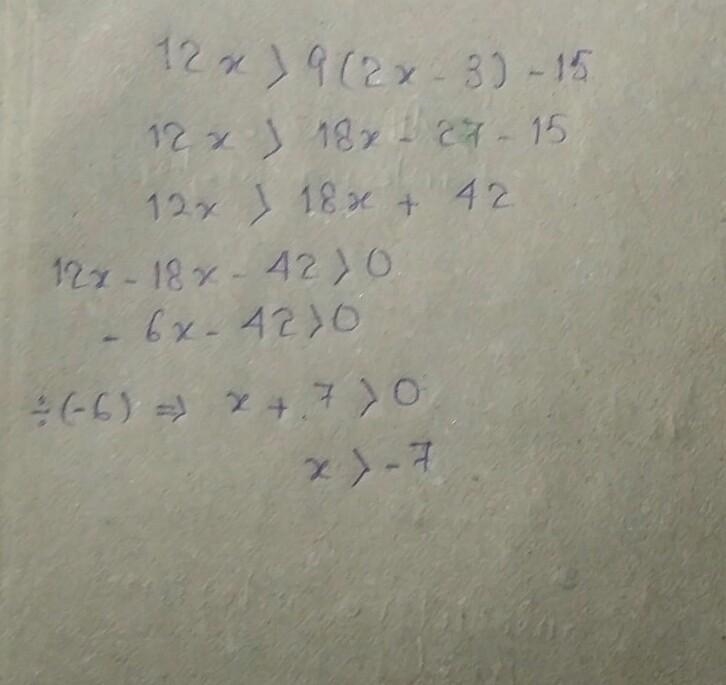 12x > 9(2x - 3) - 15
12x > 18x - 27 - 15
12x > 18x + 42
12x - 18x - 42 > 0
- 6x - 42 > 0
÷(-6) ⇒ x + 7 > 0
x > -7